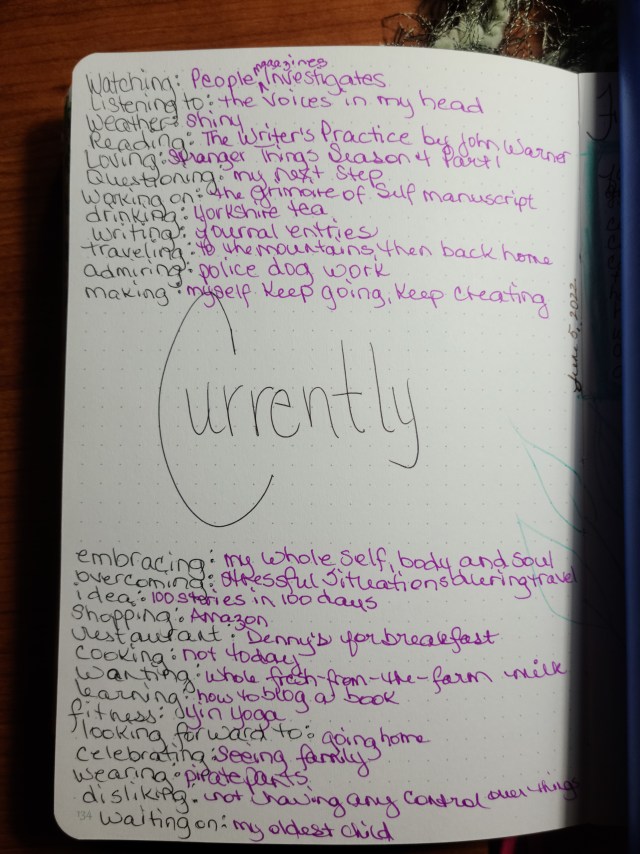 Watching: People magazines Investigates
Listening to: the voices in my head
Weather: shiny
Reading: The Writer's Practice by John Warner
Loving: Stranger Things Season 4 Part 1
Questioning: my next step
working on: the Grimoire of Self manuscript
drinking: Yorkshire tea
writing: journal entries
traveling: to the mountains, then back home
admiring: police dog work
making: myself keep going, keep creating
Currently
June 5, 2022
embracing: my whole self, body and soul
overcoming: stressful situations during travel
idea: 100 stories in 100 days
shopping: Amazon
restaurant: Denny's for breakfast
cooking: not today
wanting: whole fresh-from-the-farm milk
learning: how to blog a book
fitness: yin yoga
looking forward to: going home
celebrating: seeing family
wearing: pirate pants
disliking: not having any control over things
waiting on: my oldest child
134